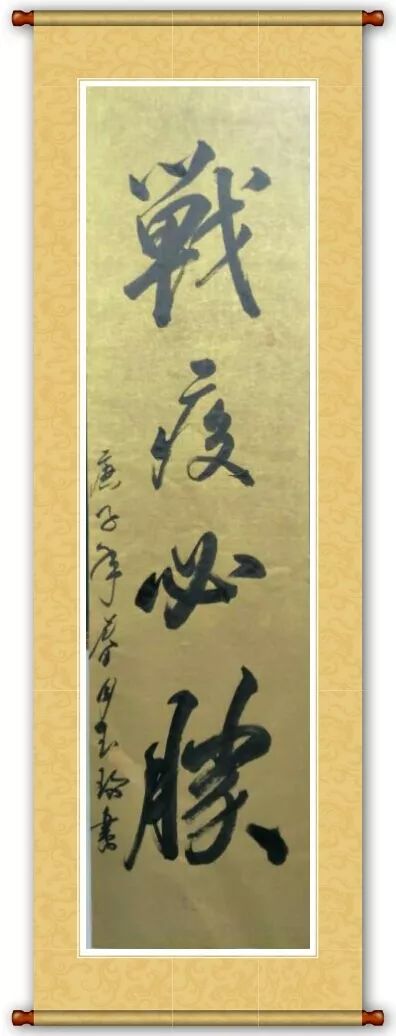 戰疫必勝
庚子年春月玉玲書